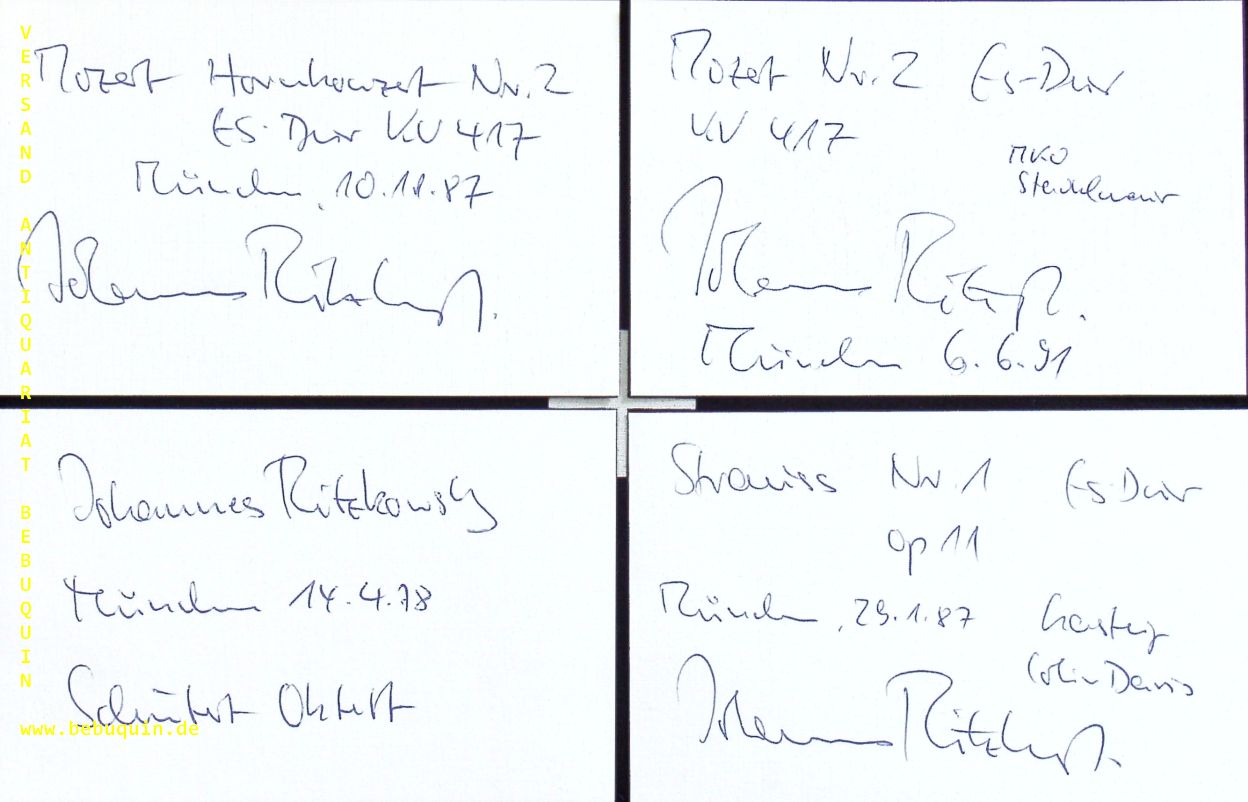 VERSAND ANTIQUARIAT BEBUQUIN
www.bebuquin.de
Mozart Hornkonzert Nr. 2
Es-Dur KV 417
München, 10.11.87
Johannes Ritzkowsky
Mozart Nr. 2 Es-Dur
KV 417
MKO
Stadlmair
Johannes Ritzkowsky
München 6.6.91
Johannes Ritzkowsky
München 14.4.78
Schubert Oktett
Strauss Nr. 1 Es-Dur
op 11
München, 29.1.87 Gasteig
Colin Davis
Johannes Ritzkowsky